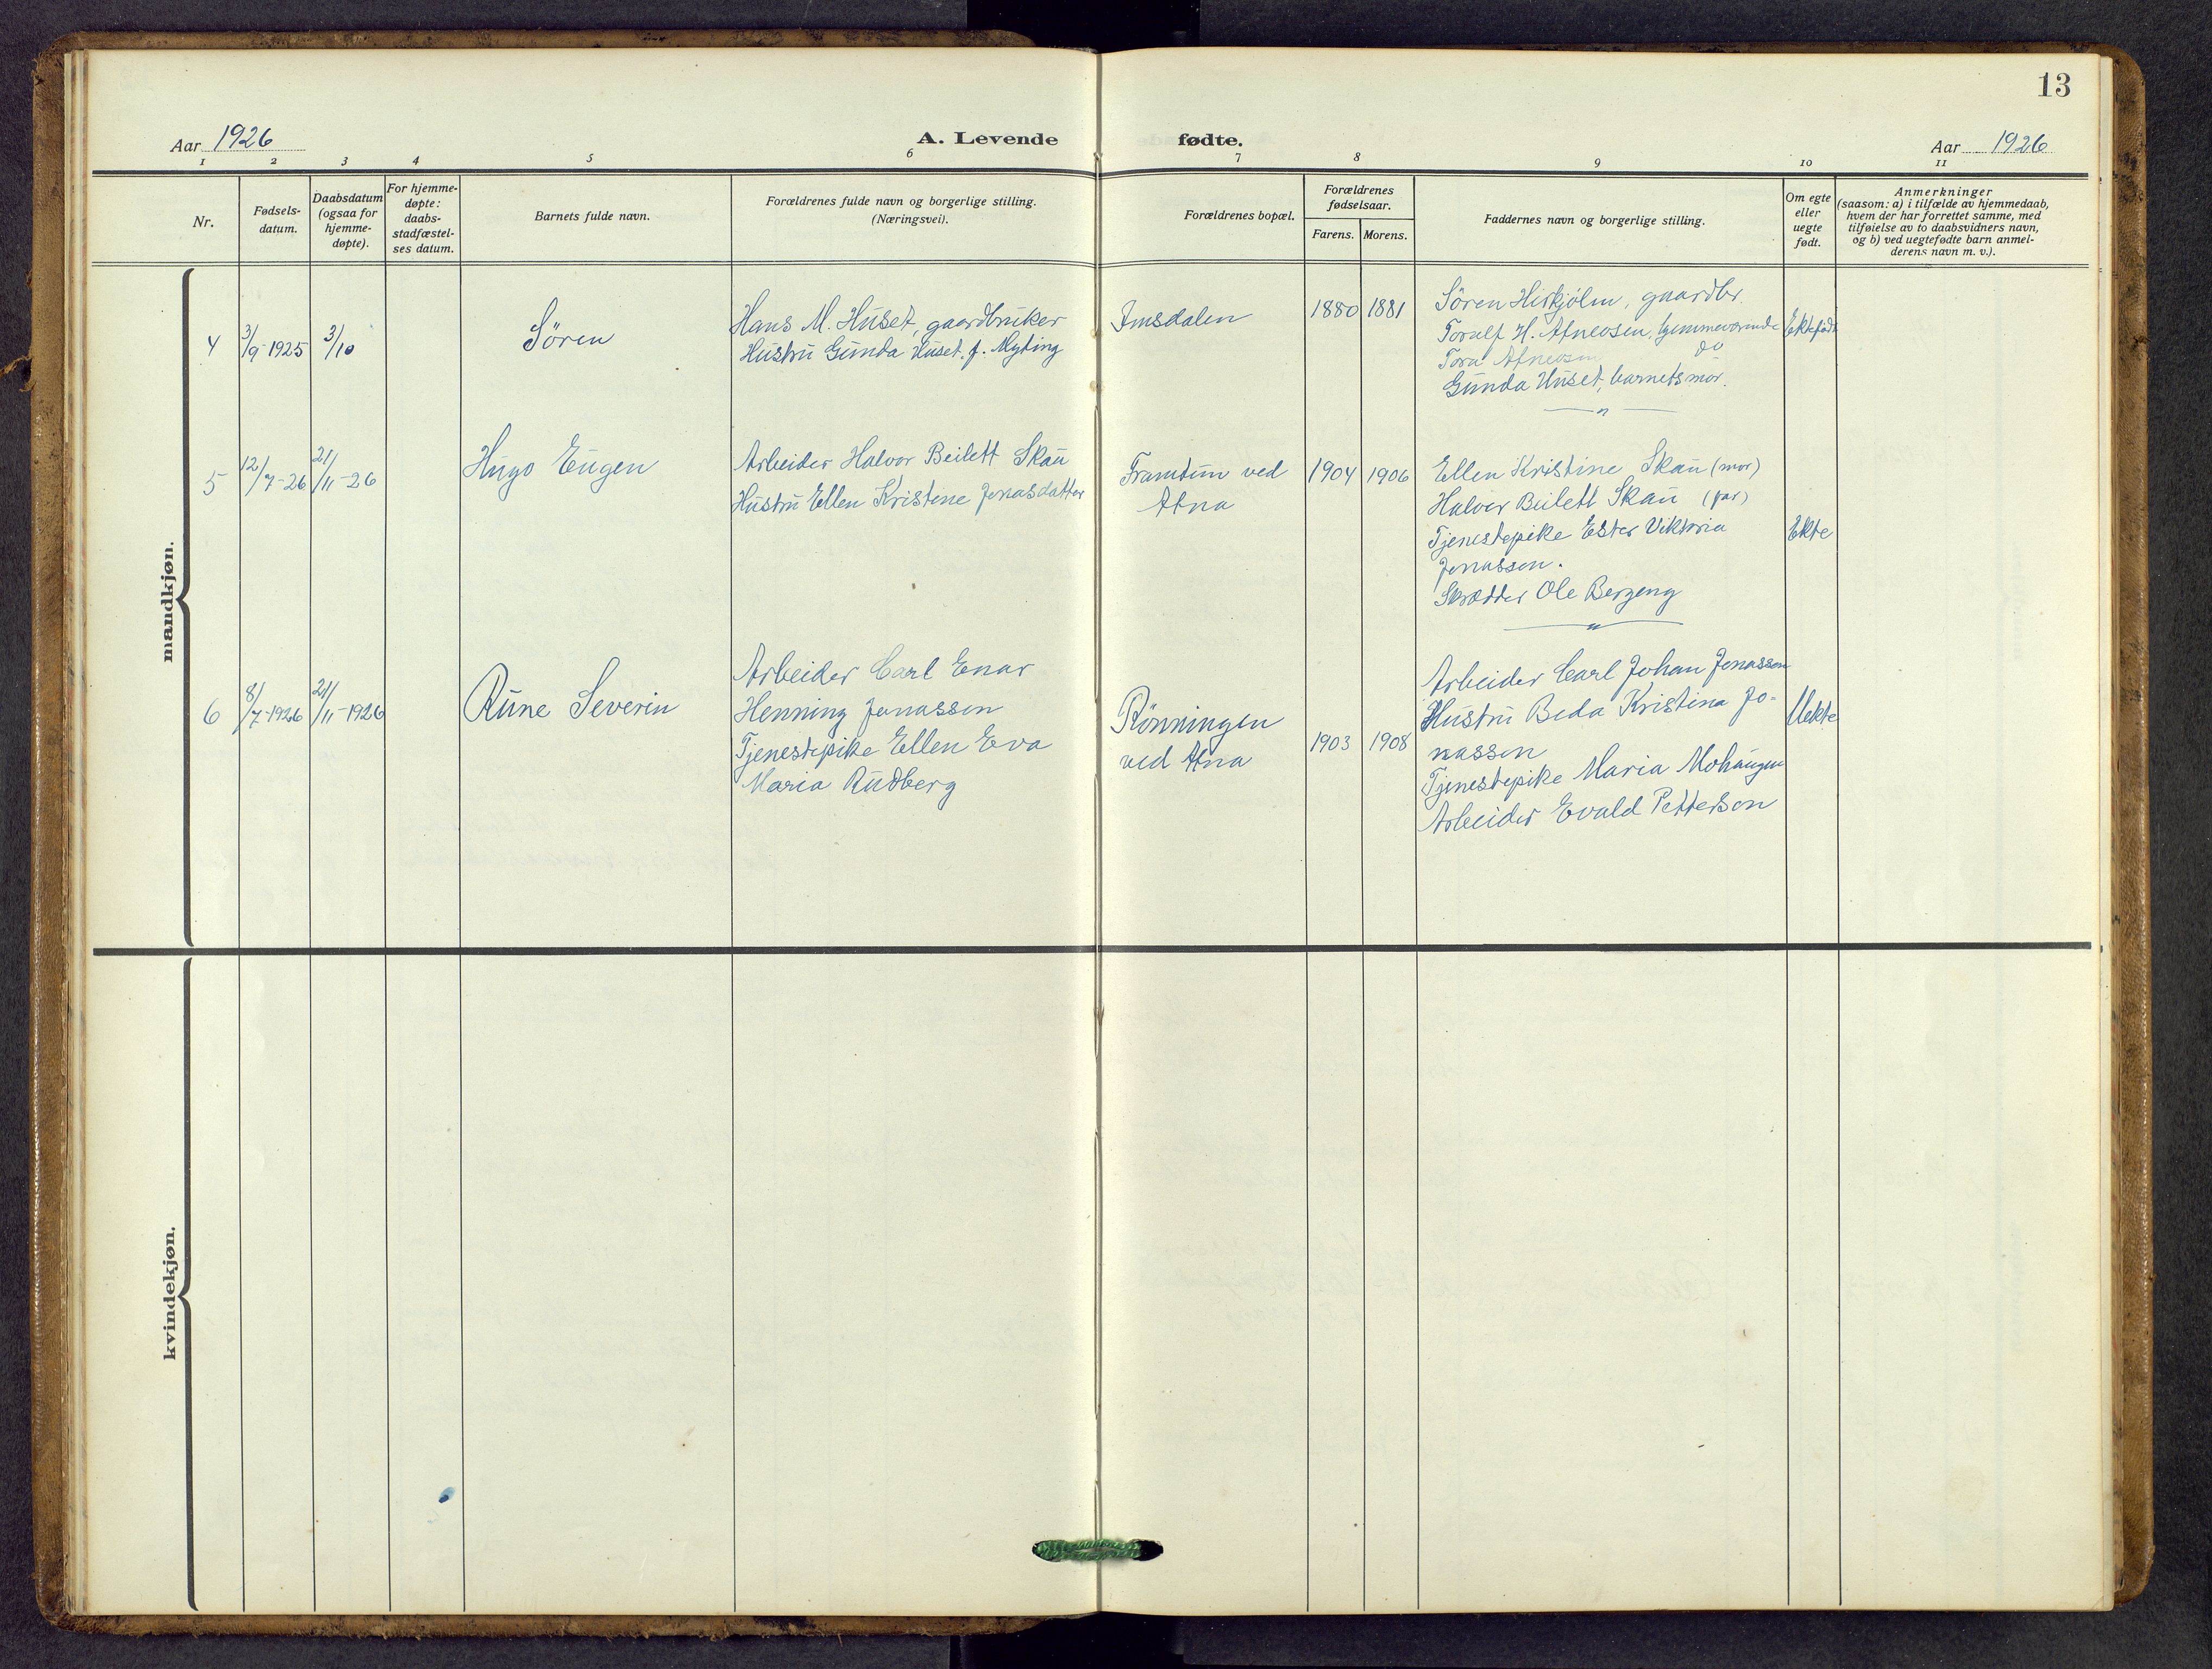 13
Aar 1926
A. Levende fødte.
Aar 1926
1 2 3 4 5 6 7 8 9 10 11
Nr.
Fødsels-
datum.
Daabsdatum
(ogsaa for
hjemme-
døpte).
For hjemme-
døpte:
daabs-
stadfæstel-
ses datum.
Barnets fulde navn.
Forældrenes fulde navn og borgerlige stilling.
(Næringsvei).
Forældrenes bopæl.
Forældrenes
fødselsaar.
Farens. Morens.
Faddernes navn og borgerlige stilling.
Om egte
eller
uegte
født.
Anmerkninger
(saasom: a) i tilfælde av hjemmedaab,
hvem der har forrettet samme, med
tilføielse av to daabsvidners navn,
og b) ved uegtefødte barn anmel-
derens navn m. v.).
mandkjøn.
4
3/9-1925
3/10
Sören
Hans M. Huset, gaardbruker
Hustru Gunda Huset. f. Myting
Imsdalen
1880 1881
Sören Hirkjólen, gaardbr.
Toralf H. Atneosen, hjemmeværende
Tora Atneosen do
Gunda Huset, barnets mor.
Ektefødt
5
12/7-26
21/11-26
Hugo Eugen
Arbeider Halvor Beilett Skau
Hustru Ellen Kristine Jonasdatter
Framtun ved
Atna
1904 1906
Ellen Kristine Skau (mor)
Halvor Beilett Skau (far)
Tjenestepike Ester Viktoria
Jonassen.
Skrædder Ole Bergeng
Ekte
6
8/7-1926
21/11-1926
Rune Severin
Arbeider Carl Enar
Henning Jonassen
Tjenestepike Ellen Eva
Maria Rudberg
Rönningen
ved Atna
1903 1908
Arbeider Carl Johan Jonassen
Hustru Beda Kristina Jo-
nassen
Tjenestepike Maria Mohaugen
Arbeider Evald Petterson
Uekte
kvindekjøn.